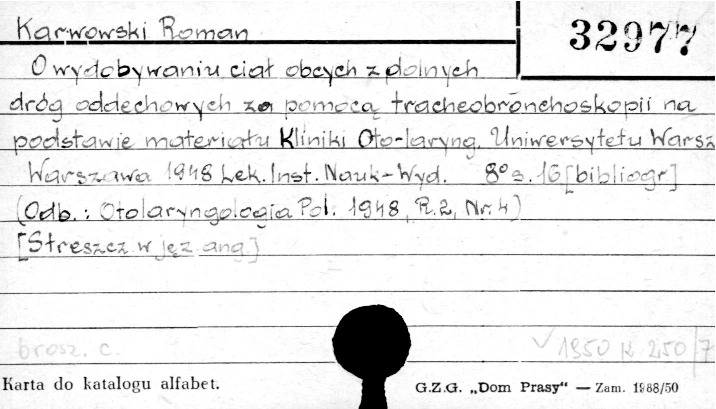 Karwowski Roman
32977
O wydobywaniu ciał obcych z dolnych
dróg oddechowych za pomocą tracheobronchoskopii na
podstawie materiału Kliniki Oto-laryng. Uniwersytetu Warsz
Warszawa 1948 Lek. Inst. Nauk-Wyd. 8° s. 16 [bibliogr]
(Odb.: Otolaryngologia Pol. 1948, R.2, Nr.4)
[Streszcz. w jęz. ang]
brosz. c.
1950 K 250/7
Karta do katalogu alfabet.
G.Z.G. „Dom Prasy“ — Zam. 1988/50